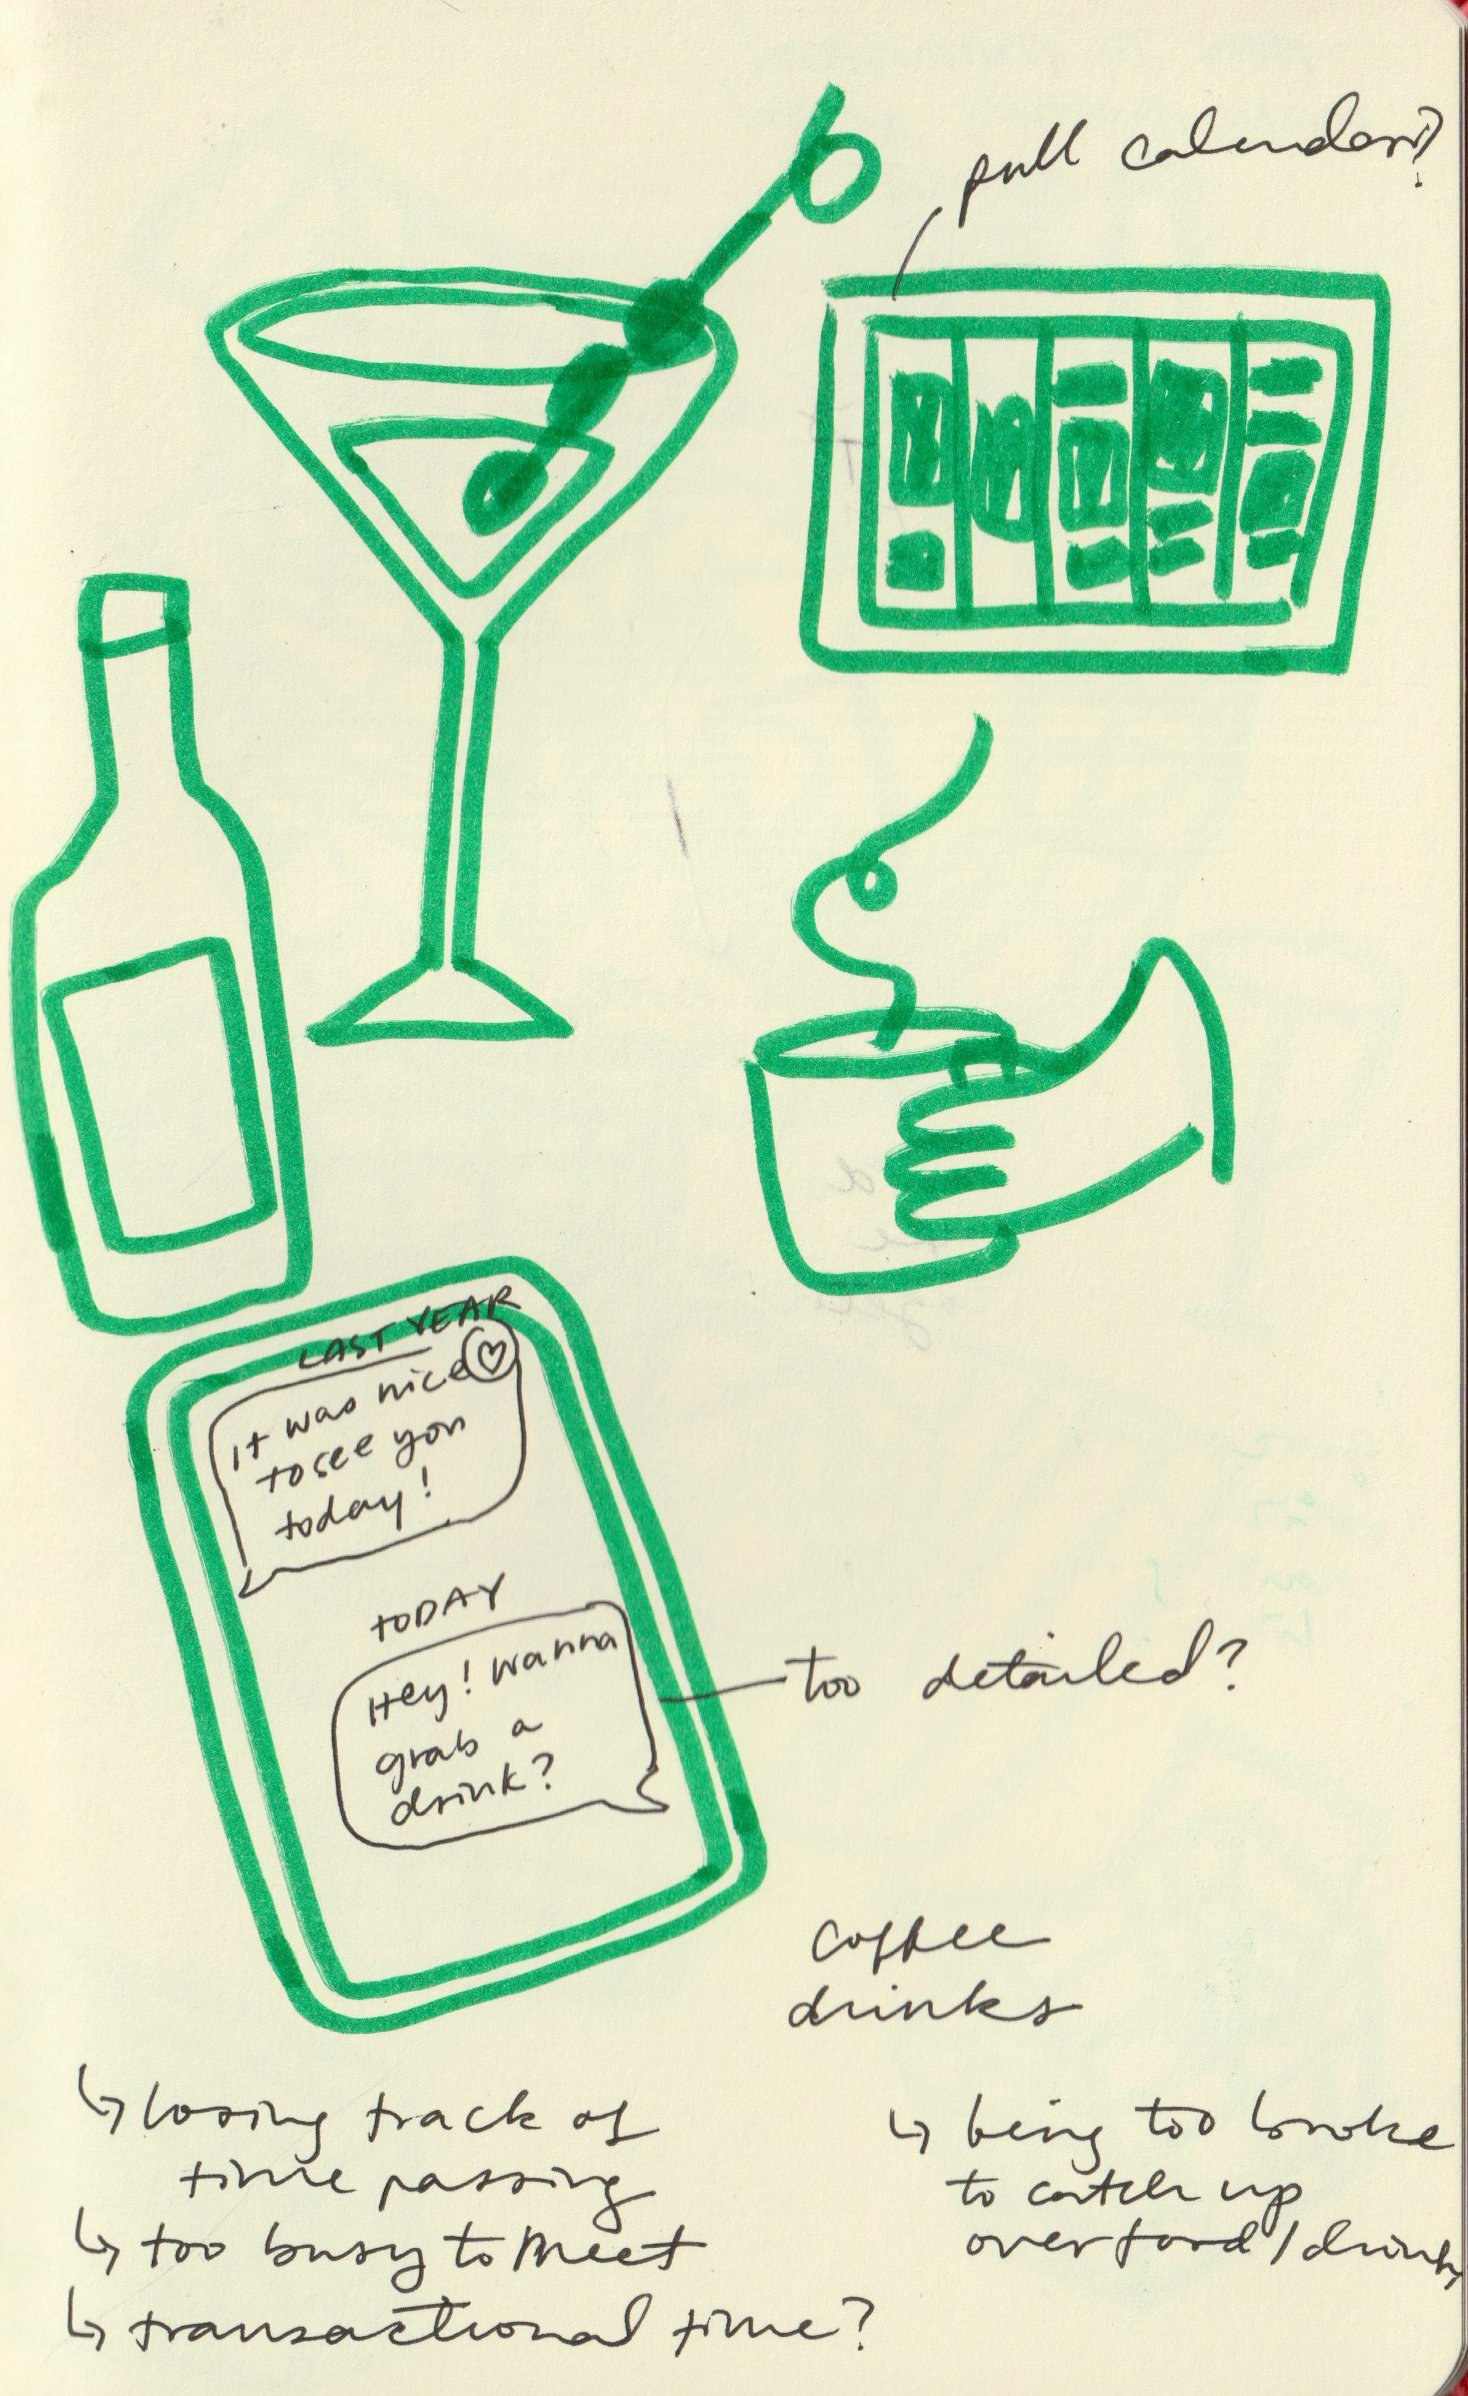 full calendar?
LAST YEAR
It was nice
to see you
today!
TODAY
Hey! wanna
grab a
drink?
too detailed?
coffee
drinks
↳ losing track of
time passing
↳ too busy to meet
↳ transactional time?
↳ being too broke
to catch up
over food/drinks